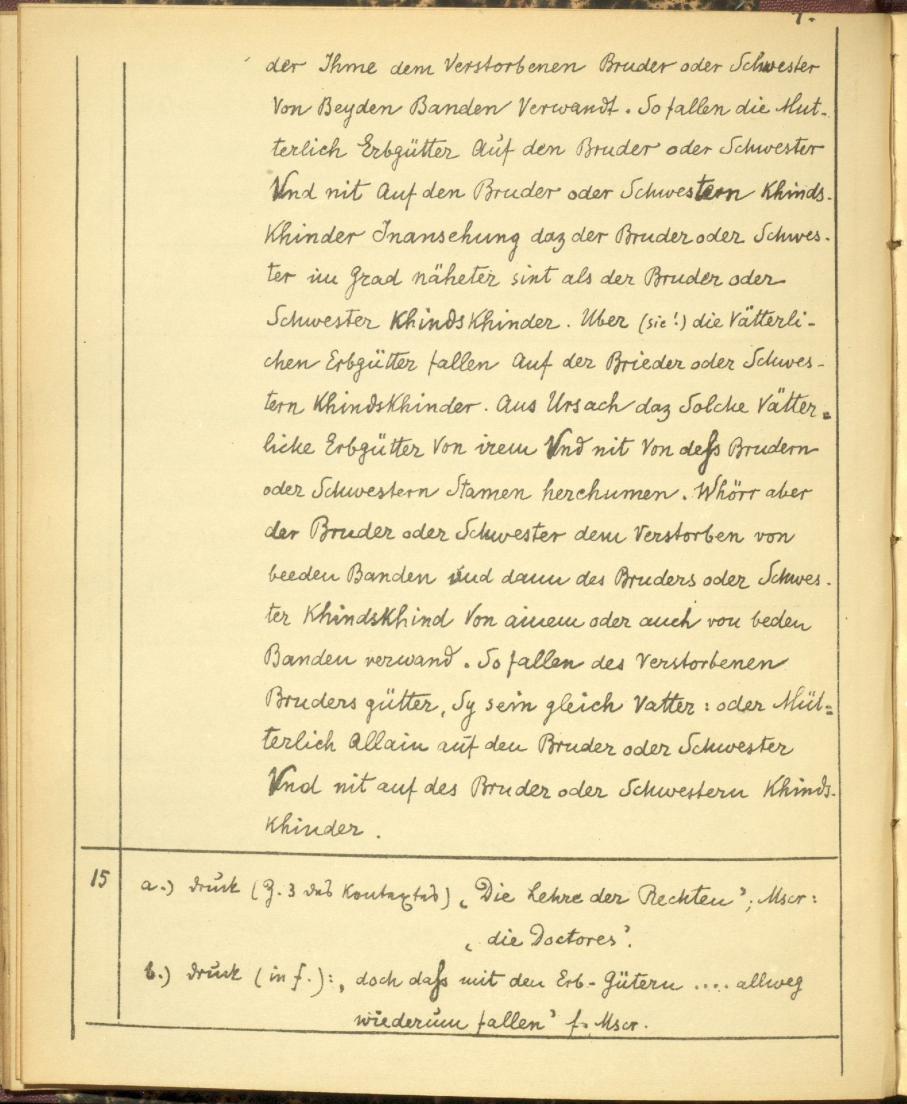 7.
der Ihme dem Verstorbenen Bruder oder Schwester
Von Beyden Banden Verwandt. So fallen die Mut-
terlich Erbgütter Auf den Bruder oder Schwester
Vnd nit Auf den Bruder oder Schwestern Khinds-
Khinder Inansehung daz der Bruder oder Schwes-
ter im Grad näheter sint als der Bruder oder
Schwester KhindsKhinder. Uber (sic!) die Vätterli-
chen Erbgütter fallen Auf der Brieder oder Schwes-
tern KhindsKhinder. Aus Ursach daz Solche Vätter=
liche Erbgütter Von irem Vnd nit Von deſs Brudern
oder Schwestern Stamen herchumen. Whörr aber
der Bruder oder Schwester dem Verstorben von
beeden Banden und dann des Bruders oder Schwes-
ter KhindsKhind Von ainem oder auch von beden
Banden verwand. So fallen des Verstorbenen
Bruders gütter, Sy sein gleich Vatter: oder Müt=
terlich Allain auf den Bruder oder Schwester
Vnd nit auf des Bruder oder Schwestern Khinds-
Khinder.
15 a.) Druck (Z. 3 des Kontextes) „Die Lehre der Rechten"; Mscr:
„die Doctores".
b.) Druck (in f.): „doch daſs mit den Erb-Gütern .... allweg
wiederum fallen" f. Mscr.